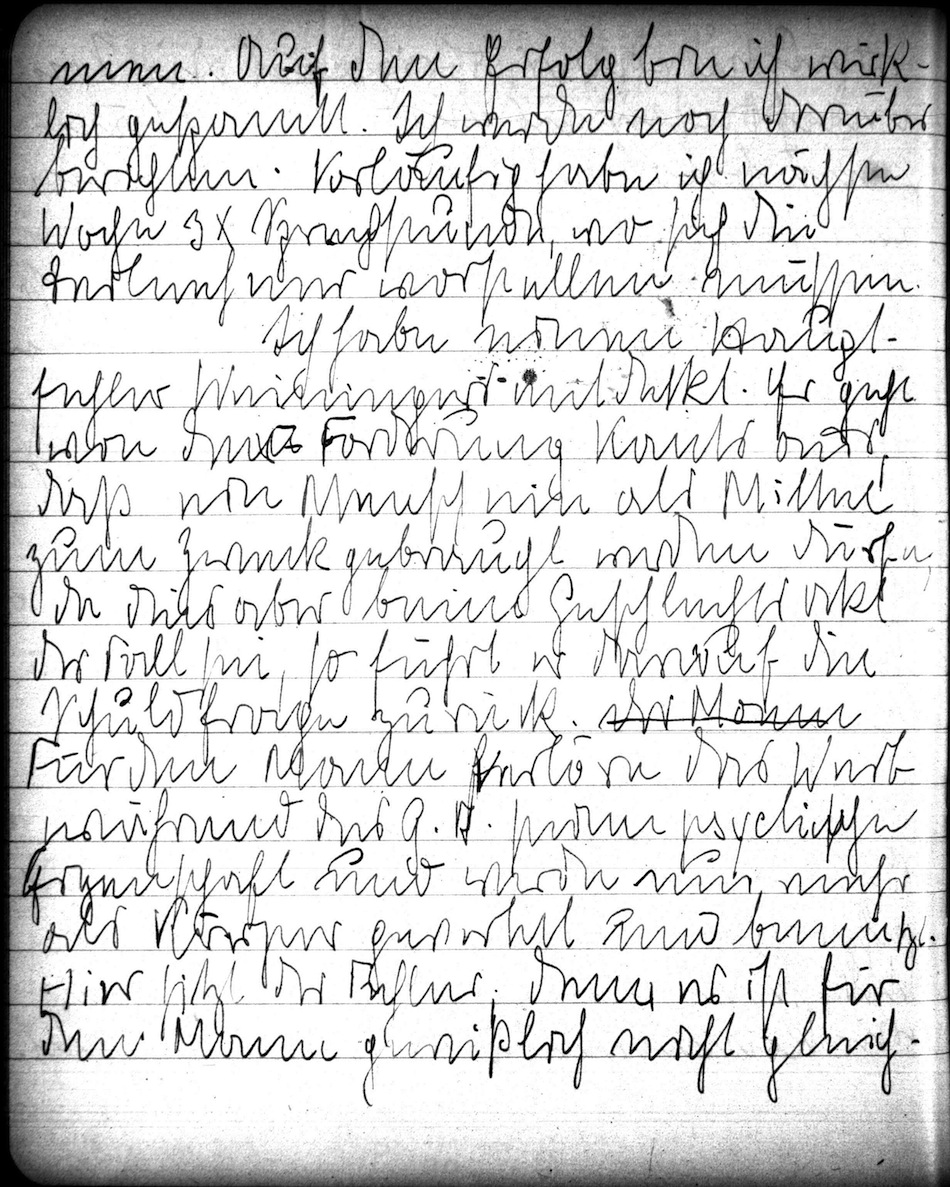 men. Auf den Erfolg bin ich wirk-
lich gespannt. Ich werde noch darüber
berichten. Vorläufig habe ich nächste
Woche 3x Sprechstunde, wo sich die
vorstellen müssen.
Ich habe einen Haupt-
fehler Weiningers entdeckt. Er geht
von der Forderung Kants aus,
daß ein Mensch nie als Mittel
zum Zweck gebraucht werden dürfe,
da dies aber beim Geschlechtsakt
der Fall sei, so führt er darauf die
Schuldfrage zurück. der Mann
Für den Mann verlöre das Weib
während des G. A. seine psychische
Eigenschaft und werde nur mehr
als Körper gewertet und benutzt.
Hier sitzt der Fehler, denn es ist für
den Mann gewißlich nicht gleich-